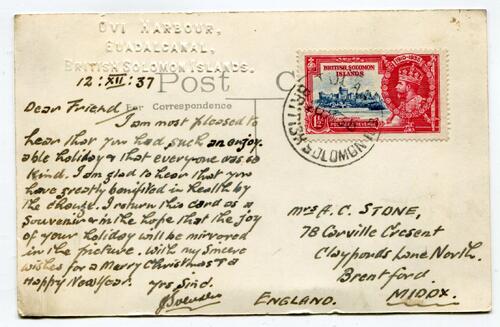 OVI HARBOUR,
GUADALCANAL,
BRITISH SOLOMON ISLANDS.
12. XII. 37
Post C
For Correspondence
Dear Friend,
I am most pleased to
hear that you had such an enjoy-
able holiday & that everyone was so
kind. I am glad to hear that you
have greatly benifited in health by
the change. I return this card as a
souvenir & in the hope that the joy
of your holiday will be mirrored
in the picture. With my sincere
wishes for a Merry Christmas & a
Happy New Year.
yrs sind.
BRITISH SOLOMON
ISLANDS
1910-1935
1½D
TULAGI
BRITISH SOLOMON IS
Mrs A. C. STONE,
78 Carville Cresent
Clayponds Lane North.
Brentford
MIDDX.
ENGLAND.